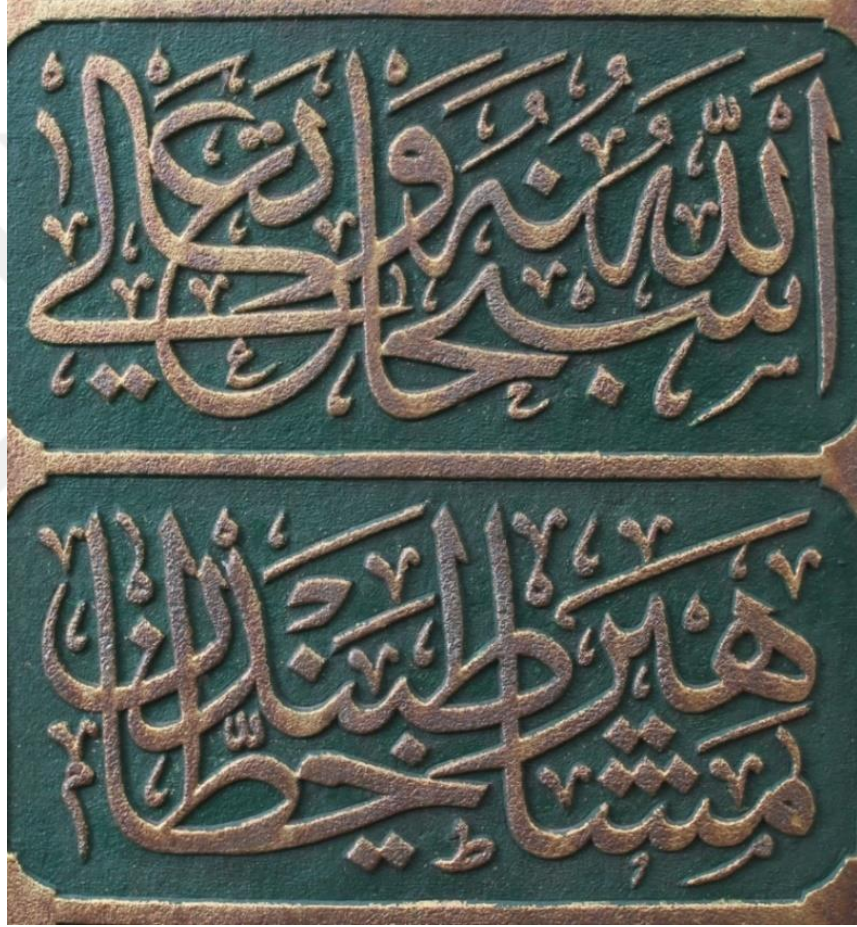 الله سُبْحَانَهُ وَتَعَالَى
مشاهير خطاطيندن